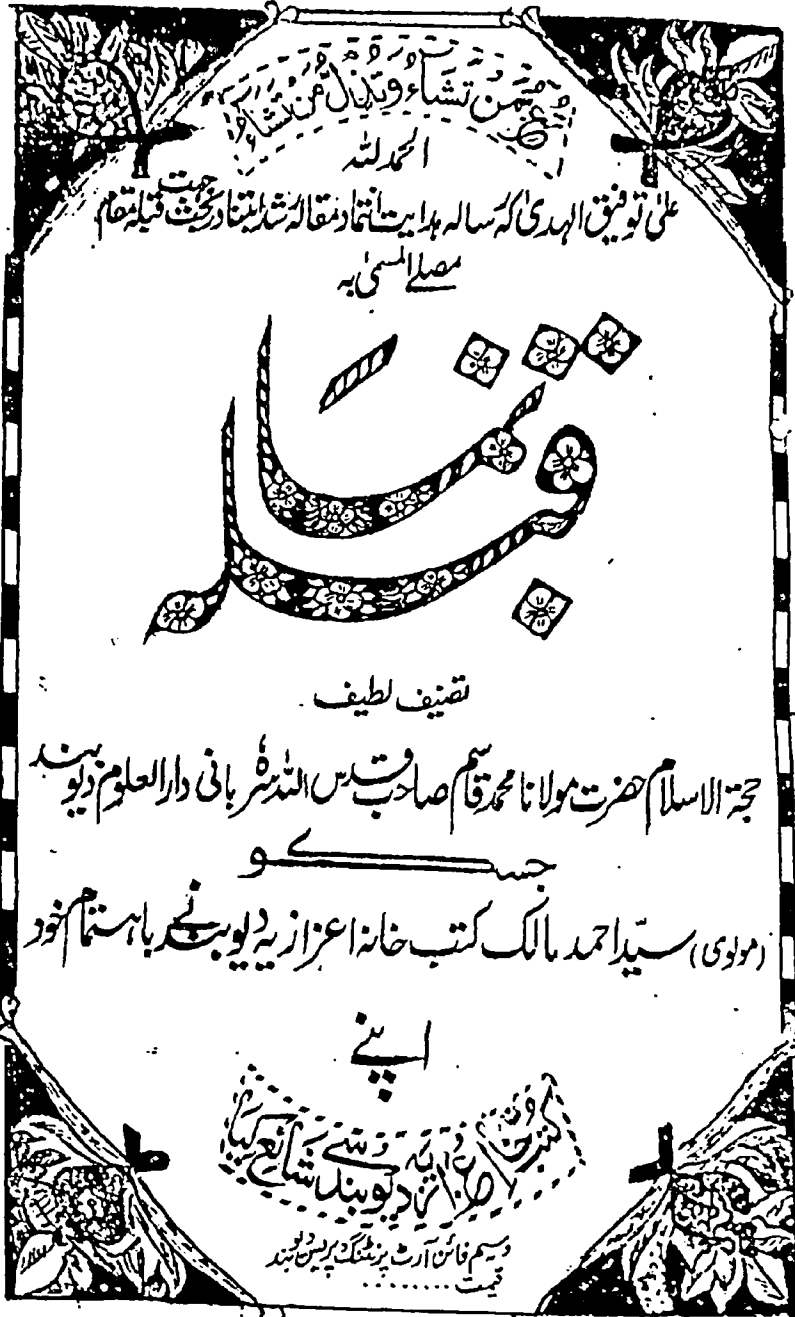 تعز من تشاء و تذل من تشاء
الحمد للہ
علیٰ توفیق الہدیٰ کہ رسالہ ہدایت انتما و مقالہ رشد ابتنا در بحث جہت قبلہ مقام
مصلے المسمیٰ بہ
قبلہ نما
تصنیف لطیف
حجۃ الاسلام حضرت مولانا محمد قاسم صاحب قدس اللہ سرہٗ بانی دارالعلوم دیوبند
جسکو
(مولوی) سیّد احمد مالک کتب خانہ اعزازیہ دیوبند نے باہتمام خود
اپنے
کتب خانہ اعزازیہ دیوبند سے شائع کیا
وسیم فائن آرٹ پرنٹنگ پریس دیوبند
قیمت .........